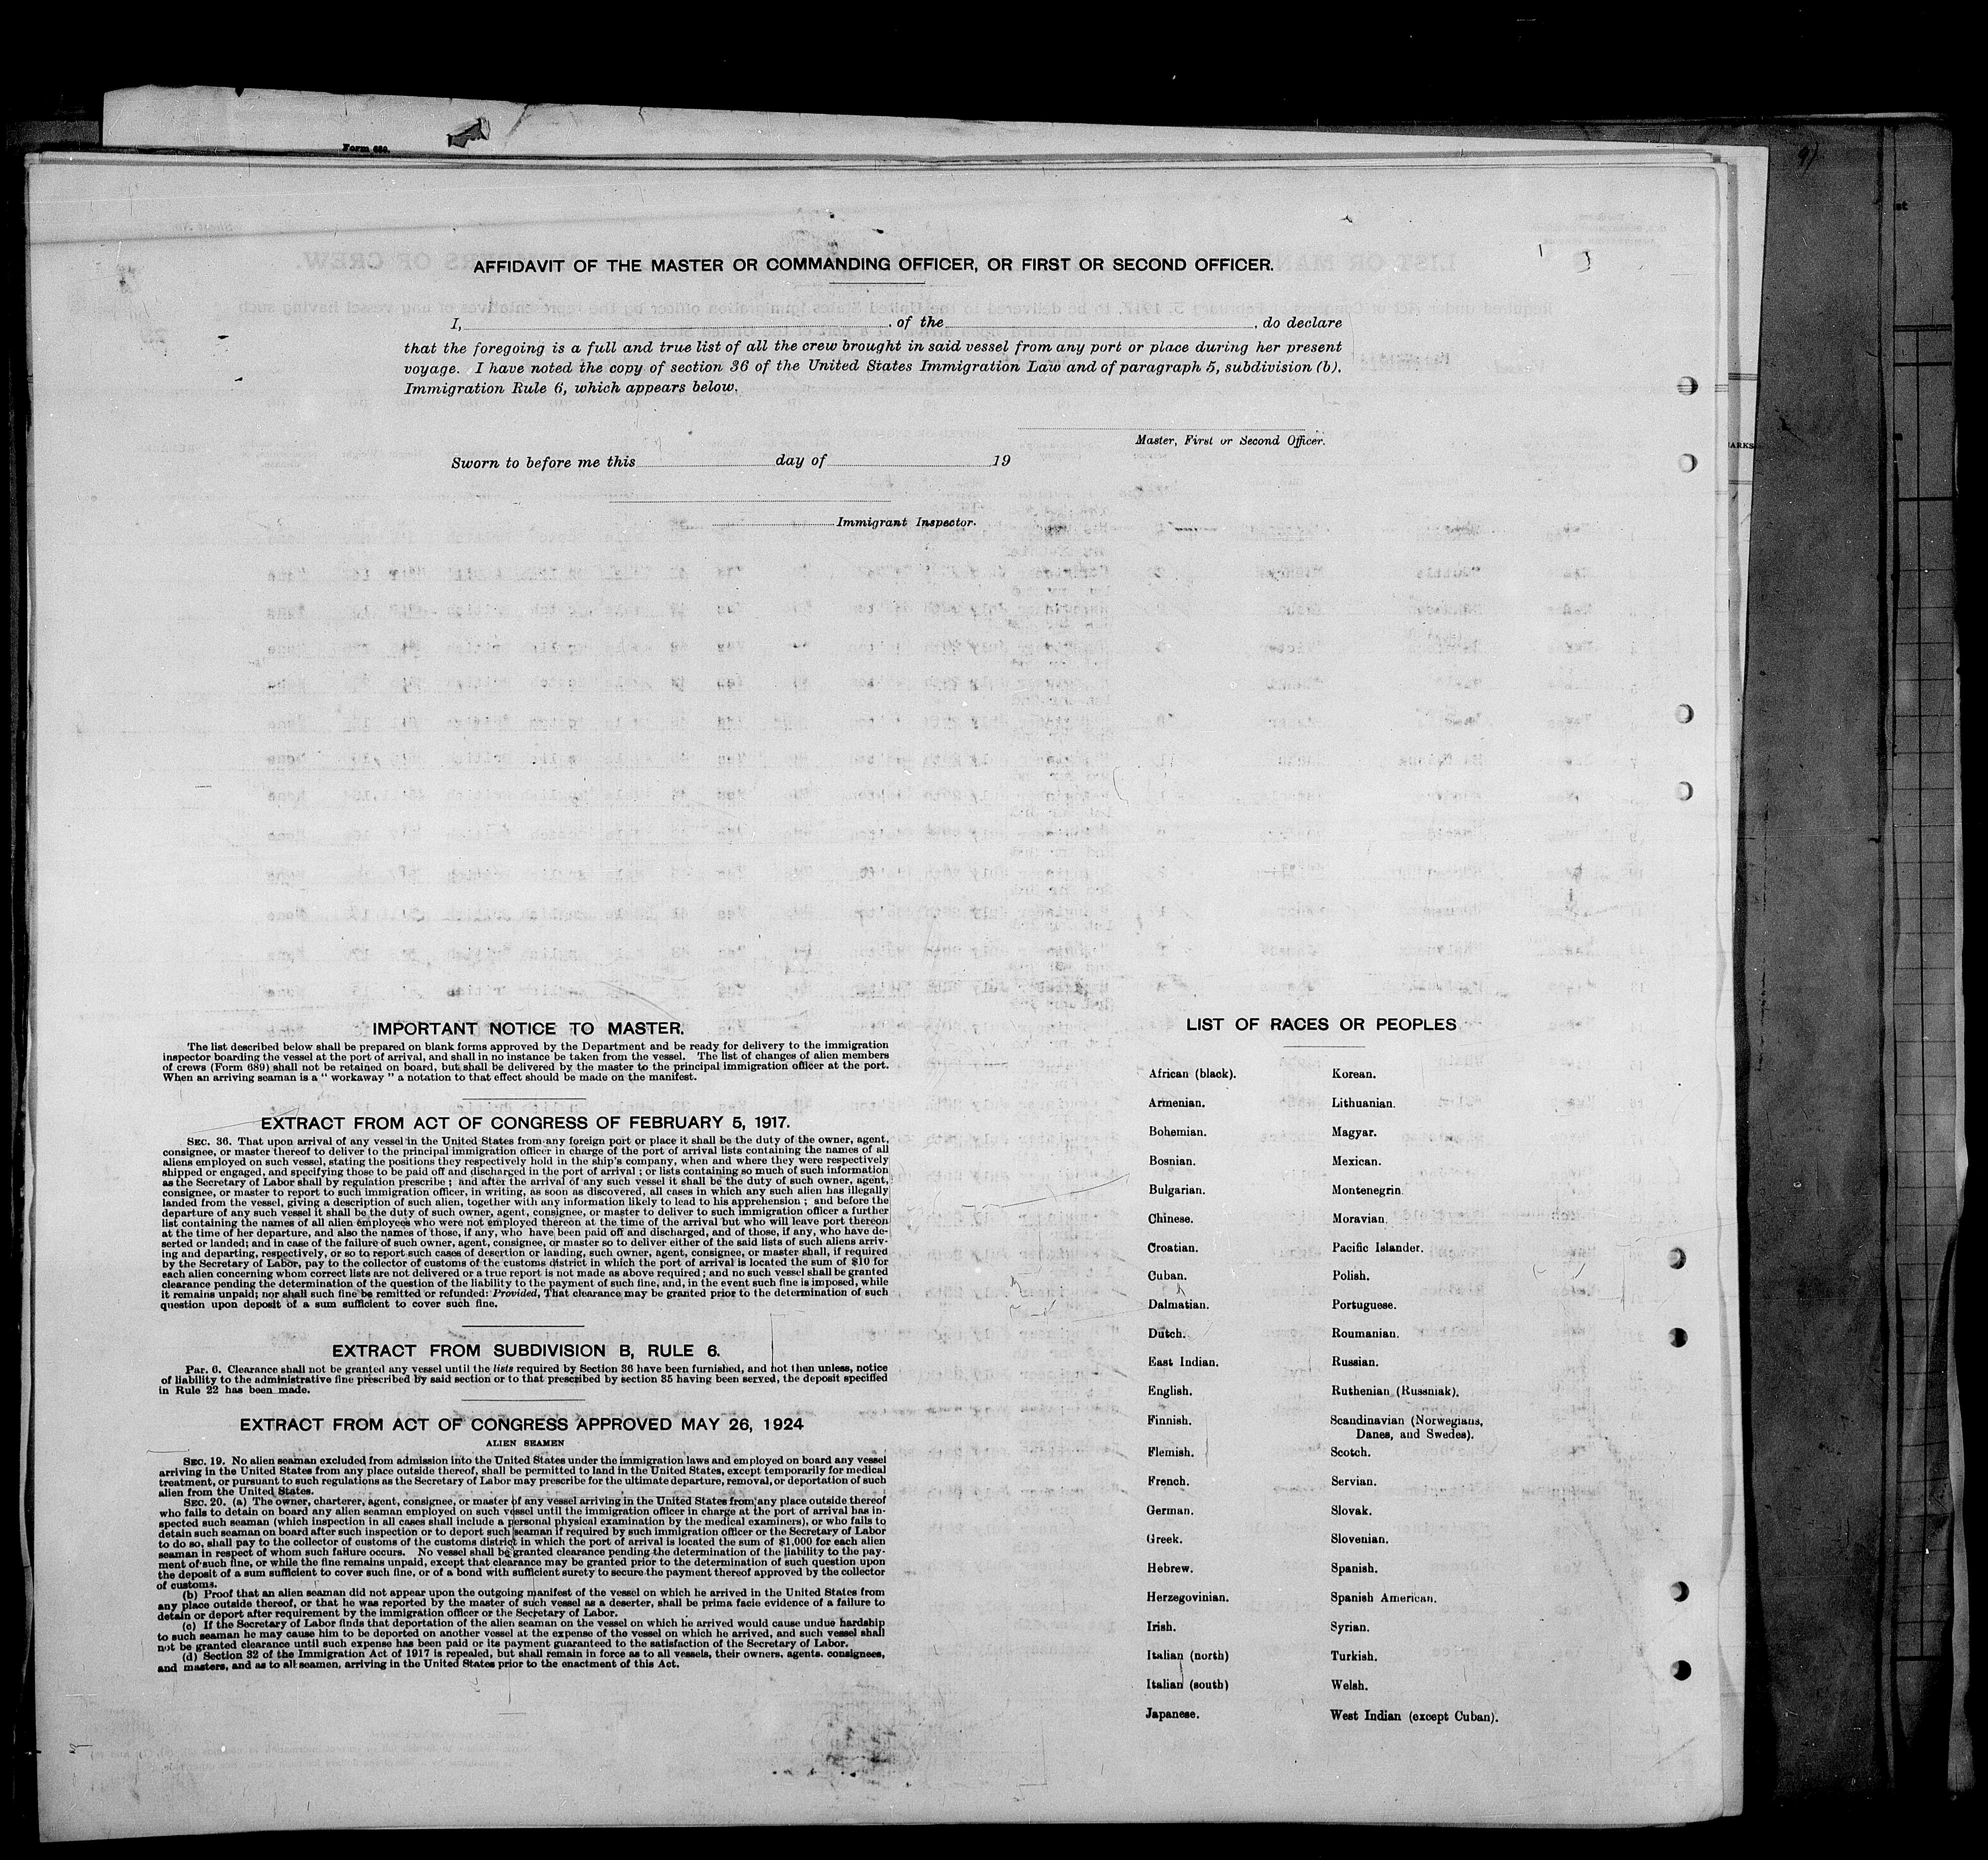 Form 680.
AFFIDAVIT OF THE MASTER OR COMMANDING OFFICER, OR FIRST OR SECOND OFFICER.
I, , of the , do declare
that the foregoing is a full and true list of all the crew brought in said vessel from any port or place during her present
voyage. I have noted the copy of section 36 of the United States Immigration Law and of paragraph 5, subdivision (b).
Immigration Rule 6, which appears below.
Master, First or Second Officer.
Sworn to before me this day of 19
Immigrant Inspector.
IMPORTANT NOTICE TO MASTER.
The list described below shall be prepared on blank forms approved by the Department and be ready for delivery to the immigration
inspector boarding the vessel at the port of arrival, and shall in no instance be taken from the vessel. The list of changes of alien members
of crews (Form 689) shall not be retained on board, but shall be delivered by the master to the principal immigration officer at the port.
When an arriving seaman is a " workaway " a notation to that effect should be made on the manifest.
EXTRACT FROM ACT OF CONGRESS OF FEBRUARY 5, 1917.
SEC. 36. That upon arrival of any vessel in the United States from any foreign port or place it shall be the duty of the owner, agent,
consignee, or master thereof to deliver to the principal immigration officer in charge of the port of arrival lists containing the names of all
aliens employed on such vessel, stating the positions they respectively hold in the ship's company, when and where they were respectively
shipped or engaged, and specifying those to be paid off and discharged in the port of arrival ; or lists containing so much of such information
as the Secretary of Labor shall by regulation prescribe ; and after the arrival of any such vessel it shall be the duty of such owner, agent,
consignee, or master to report to such immigration officer, in writing, as soon as discovered, all cases in which any such alien has illegally
landed from the vessel, giving a description of such alien, together with any information likely to lead to his apprehension ; and before the
departure of any such vessel it shall be the duty of such owner, agent, consignee, or master to deliver to such immigration officer a further
list containing the names of all alien employees who were not employed thereon at the time of the arrival but who will leave port thereon
at the time of her departure, and also the names of those, if any, who have been paid off and discharged, and of those, if any, who have de-
serted or landed; and in case of the failure of such owner, agent, consignee, or master so to deliver either of the said lists of such aliens arriv-
ing and departing, respectively, or so to report such cases of desertion or landing, such owner, agent, consignee, or master shall, if required
by the Secretary of Labor, pay to the collector of customs of the customs district in which the port of arrival is located the sum of $10 for
each alien concerning whom correct lists are not delivered or a true report is not made as above required ; and no such vessel shall be granted
clearance pending the determination of the question of the liability to the payment of such fine, and, in the event such fine is imposed, while
it remains unpaid; nor shall such fine be remitted or refunded: Provided, That clearance may be granted prior to the determination of such
question upon deposit of a sum sufficient to cover such fine.
EXTRACT FROM SUBDIVISION B, RULE 6.
Par. 6. Clearance shall not be granted any vessel until the lists required by Section 36 have been furnished, and not then unless, notice
of liability to the administrative fine prescribed by said section or to that prescribed by section 35 having been served, the deposit specified
in Rule 22 has been made.
EXTRACT FROM ACT OF CONGRESS APPROVED MAY 26, 1924
ALIEN SEAMEN
SEC. 19. No alien seaman excluded from admission into the United States under the immigration laws and employed on board any vessel
arriving in the United States from any place outside thereof, shall be permitted to land in the United States, except temporarily for medical
treatment, or pursuant to such regulations as the Secretary of Labor may prescribe for the ultimate departure, removal, or deportation of such
alien from the United States.
SEC. 20. (a) The owner, charterer, agent, consignee, or master of any vessel arriving in the United States from any place outside thereof
who fails to detain on board any alien seaman employed on such vessel until the immigration officer in charge at the port of arrival has in-
spected such seaman (which inspection in all cases shall include a personal physical examination by the medical examiners), or who fails to
detain such seaman on board after such inspection or to deport such seaman if required by such immigration officer or the Secretary of Labor
to do so, shall pay to the collector of customs of the customs district in which the port of arrival is located the sum of $1,000 for each alien
seaman in respect of whom such failure occurs. No vessel shall be granted clearance pending the determination of the liability to the pay-
ment of such fine, or while the fine remains unpaid, except that clearance may be granted prior to the determination of such question upon
the deposit of a sum sufficient to cover such fine, or of a bond with sufficient surety to secure the payment thereof approved by the collector
of customs.
(b) Proof that an alien seaman did not appear upon the outgoing manifest of the vessel on which he arrived in the United States from
any place outside thereof, or that he was reported by the master of such vessel as a deserter, shall be prima facie evidence of a failure to
detain or deport after requirement by the immigration officer or the Secretary of Labor.
(c) If the Secretary of Labor finds that deportation of the alien seaman on the vessel on which he arrived would cause undue hardship
to such seaman he may cause him to be deported on another vessel at the expense of the vessel on which he arrived, and such vessel shall
not be granted clearance until such expense has been paid or its payment guaranteed to the satisfaction of the Secretary of Labor.
(d) Section 32 of the Immigration Act of 1917 is repealed, but shall remain in force as to all vessels, their owners, agents, consignees,
and masters, and as to all seamen, arriving in the United States prior to the enactment of this Act.
LIST OF RACES OR PEOPLES
African (black).
Armenian.
Bohemian.
Bosnian.
Bulgarian.
Chinese.
Croatian.
Cuban.
Dalmatian.
Dutch.
East Indian.
English.
Finnish.
Flemish.
French.
German.
Greek.
Hebrew.
Herzegovinian.
Irish.
Italian (north)
Italian (south)
Japanese.
Korean.
Lithuanian.
Magyar.
Mexican.
Montenegrin
Moravian
Pacific Islander.
Polish.
Portuguese.
Roumanian.
Russian.
Ruthenian (Russniak).
Scandinavian (Norwegians,
Danes, and Swedes).
Scotch.
Servian.
Slovak.
Slovenian.
Spanish.
Spanish American.
Syrian.
Turkish.
Welsh.
West Indian (except Cuban).
ARKS